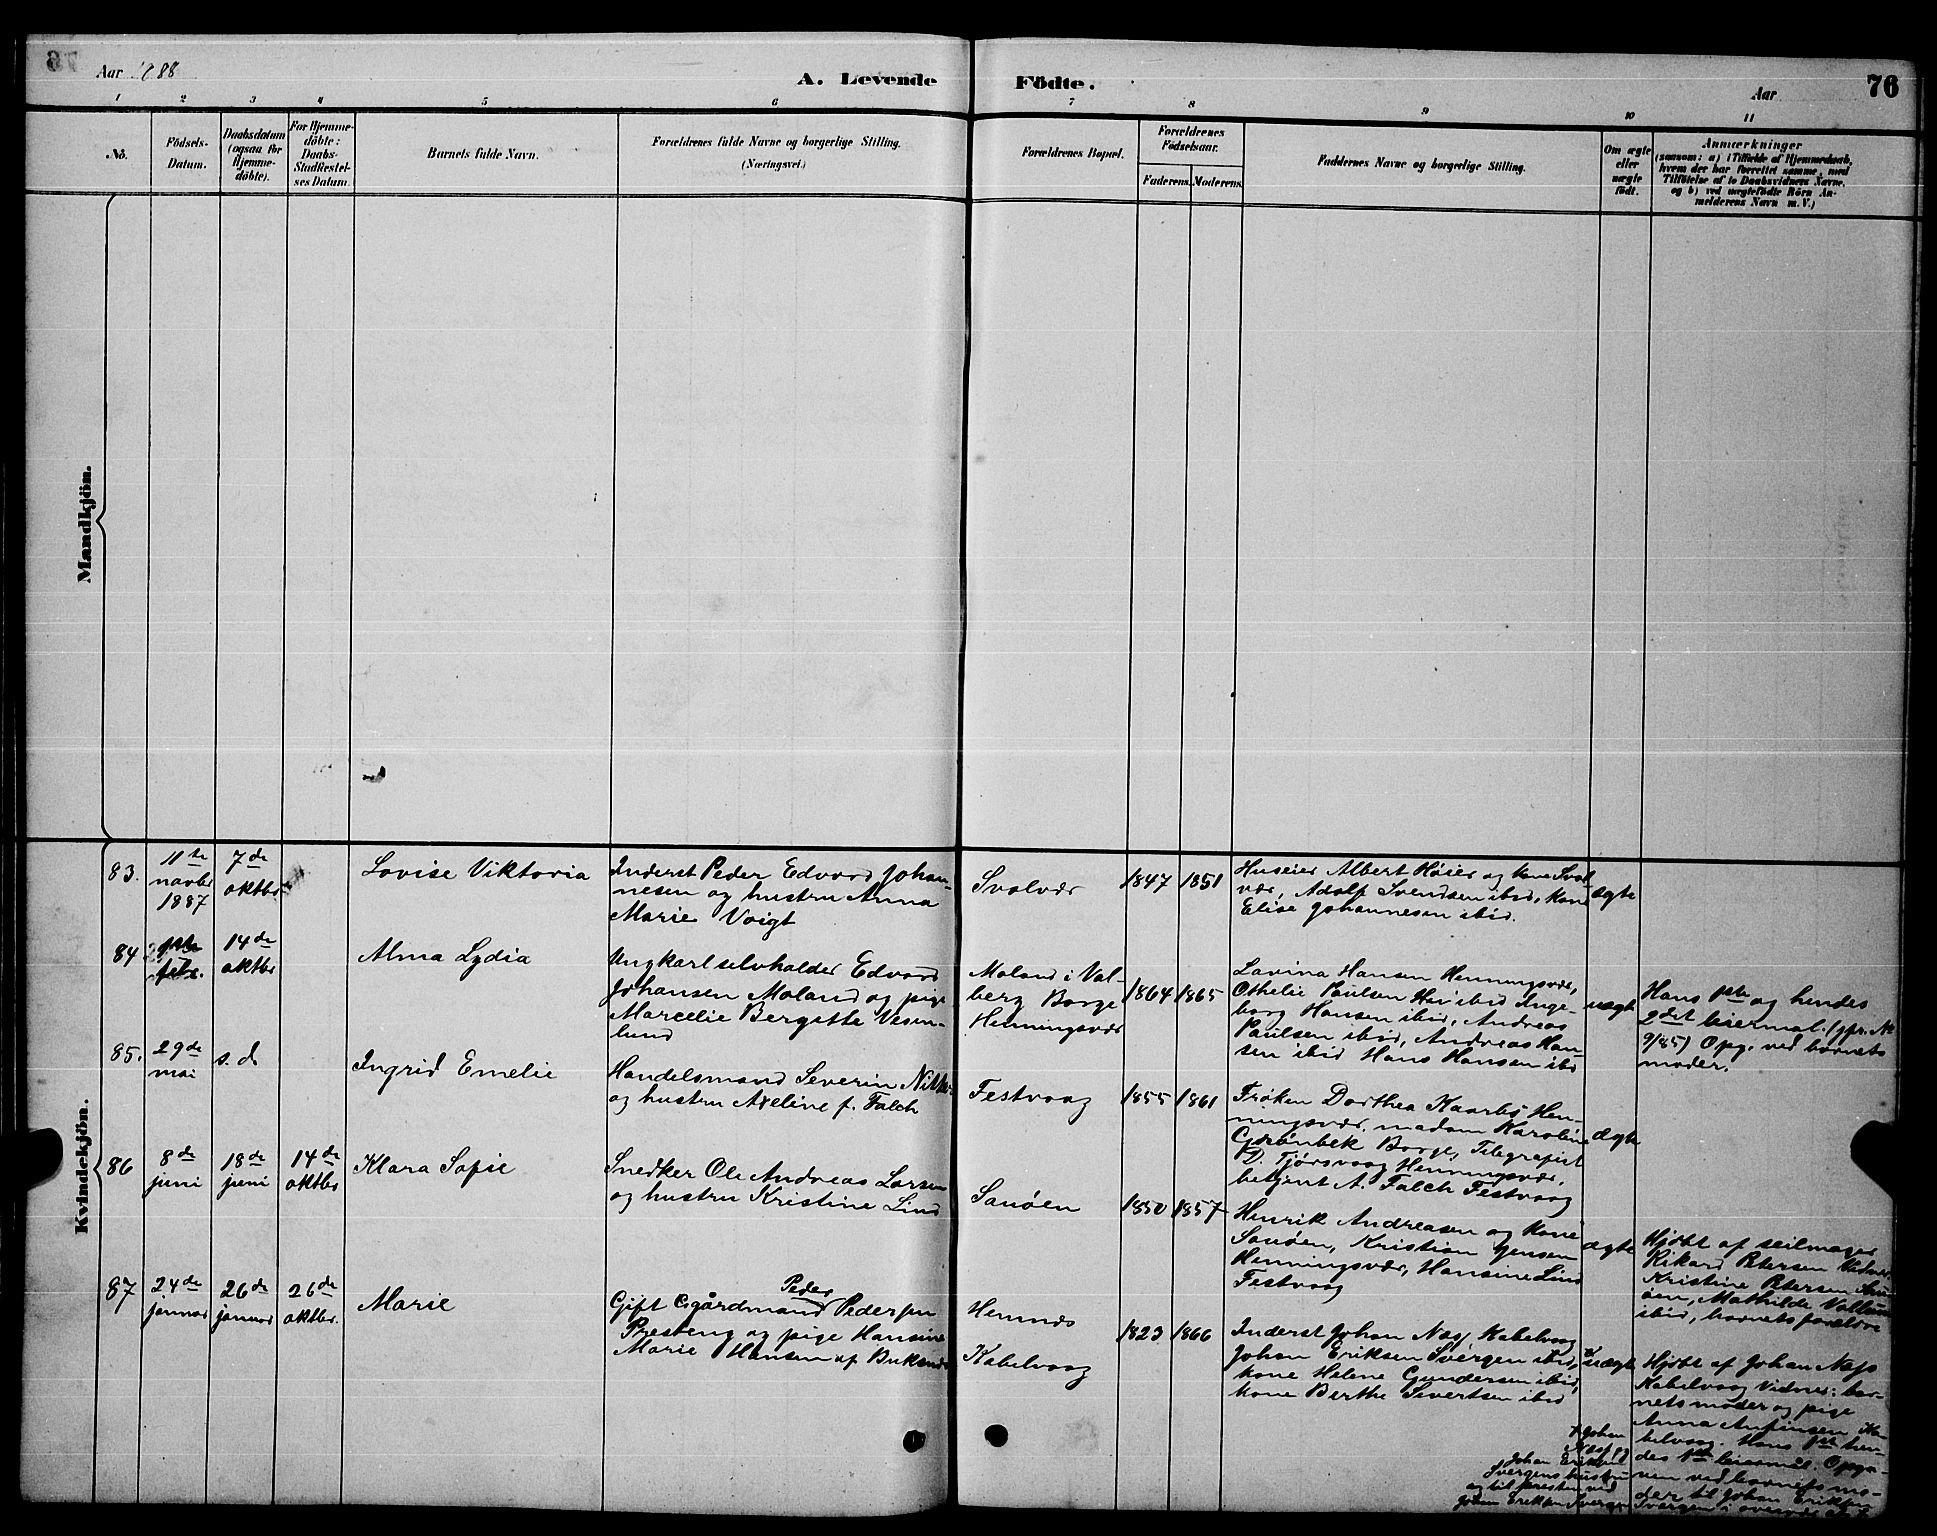 Aar 1888
A. Levende Födte.
Aar
76
1 2 3 4 5 6 7 8 9 10 11
No.
Födsels-
Datum.
Daabsdatum
(ogsaa for
Hjemme-
döbte).
For Hjemme-
döbte:
Daabs-
Stadfæstel-
ses Datum.
Barnets fulde Navn.
Forældrenes fulde Navne og borgerlige Stilling.
(Næringsvei.)
Forældrenes Bopæl.
Forældrenes
Födselsaar.
Faderens.
Moderens.
Faddernes Navne og borgerlige Stilling.
Om ægte
eller
uægte
födt.
Anmærkninger
(saasom: a) i Tilfælde af Hjemmedaab,
hvem der har forrettet samme, med
Tilföielse af to Daabsvidners Navne,
og b) ved uægtefödte Börn An-
melderens Navn m. V.)
Mandkjön.
Kvindekjön.
83.
11te
novbr
1887
7de
oktbr
Lovise Viktoria
Inderst Peder Edvard Johan-
nesen og hustru Anna
Marie Voigt
Svolvær
1847
1851
Huseier Albert Høier og kone Svol-
vær, Adolf Svendsen ibid, kone
Elise Johannesen ibid.
ægte
84
14de
oktbr
Alma Lydia
Ungkarl selvholder Edvard
Johansen Moland og pige
Marcelie Bergitte Vesm-
lund
Moland i Val-
berg Borge
Henningsvær
1864
1865
Lavina Hansen Henningsvær,
Othelie Paulsen ibid Inge-
borg Hansen ibid, Andreas
Paulsen ibid, Andreas Han-
sen ibid Hans Hansen ibid
uægte
Hans 1ste og hendes
2det leiermal. (gfr. No
9/85) Opg. ved barnets
moder.
85.
29de
mai
s. d.
Ingrid Emelie
Handelsmand Severin
og hustru Axeline f. Falch
Festvaag
1855
1861
Frøken Dorthea Kaarbø Hen-
ningsvær, madam Karoline
Grønbek Borge, Telegrafist
D. Tjørsvaag Henningsvær,
betjent A. Falch Festvaag
ægte
86
8de
juni
18de
juni
14de
oktbr
Klara Sofie
Snedker Ole Andreas Larsen
og hustru Kristine Lind
Sauøen
1850
1857
Henrik Andreasen og kone
Sauøen, Kristian Jensen
Henningsvær, Hansine Lind
Festvaag
ægte
Hjdøbt af seilmager
Rikard Petersen Vidner:
Kristine Petersen Sau-
øen, Mathilde
ibid, barnets forældre
87
24de
januar
26de
januar
26de
oktbr.
Marie
Peder
Gift Gårdmand Pedersen
Presteng og pige Hansine
Marie Hansen af Buksnæs
Hemnæs
Kabelvaag
1823
1866
Inderst Johan Næss Kabelvaag
Johan Eriksen Svergen ibid,
kone Helene Gundersen ibid,
kone Berthe Sivertsen ibid
uægte
Hjdøbt af Johan Næss
Kabelvaag Vidner: bar-
nets moder og pige
Anna Anfinsen Ka-
belvaag. Hans 1ste hen-
des 1ste leiermål. Opgi-
ven ved barnets mo-
der til Johan Eriksen
Svergen i overvær af
x Johan
Næss og
Johan Eriksen
Svergens hustru
og til presten ved
Johan Eriksen Svergen